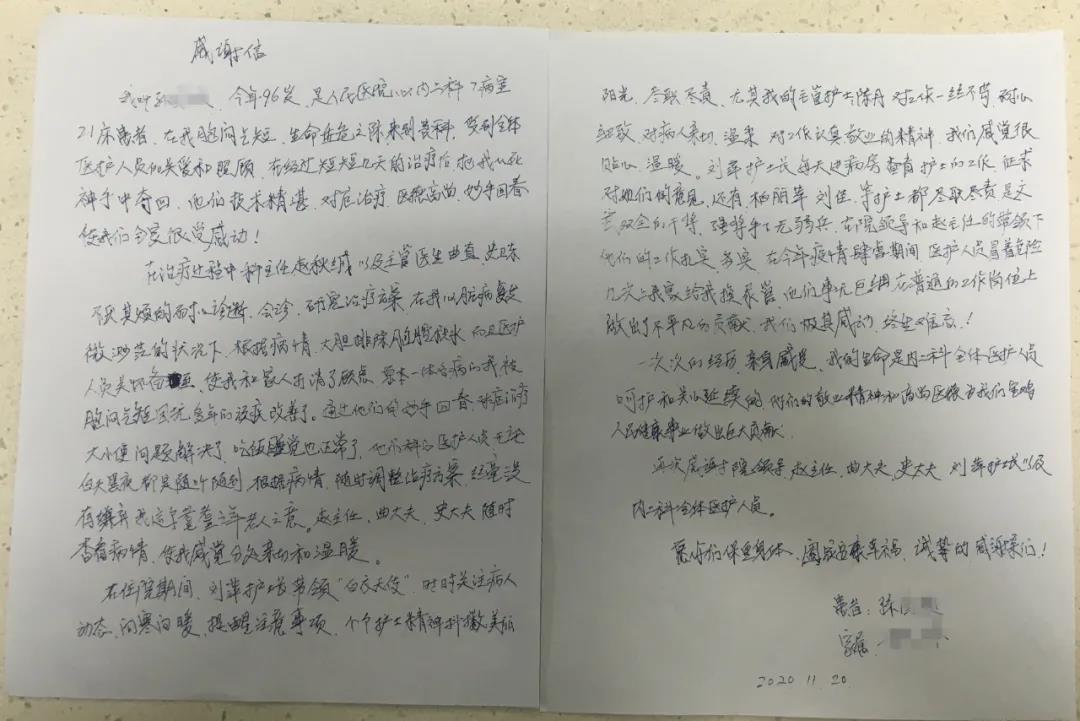 感谢信
我叫 今年96岁,是人民医院 内二科7病室
21床患者,在我胸闷气短,生命垂危之际来到贵科,受到全体
医护人员的关爱和照顾,在经过短短几天的治疗后,把我从死
神手中夺回,他们技术精湛,对症治疗,医德高尚,妙手回春
使我们全家很受感动!
在治疗过程中科主任赵秋 以及主管医生曲直、史
不厌其烦的耐心诊断,会诊,研究治疗方案,在我心脏病复发
微 的状况下,根据病情,大胆排除 腔积水,而且医护
人员关怀备至,使我和家人打消了顾虑,原本一体多病的我被
胸闷气短困扰多年的顽疾改善了。通过他们的妙手回春,对症治疗
大小便问题解决了,吃饭睡觉也正常了,他们科的医护人员无论
白天黑夜都是随叫随到,根据病情,随时调整治疗方案,丝毫没
有嫌弃我这字耄耋之年老人之意。赵主任、曲大夫、史大夫随时
查看病情,使我感觉分外亲切和温暖。
在住院期间,刘萍护士长带领“白衣天使”时时关注病人
动态,问寒问暖,提醒注意事项,个个护士精神抖擞,美丽
阳光,尽职尽责,尤其我的主管护士陈丹 对工作一丝不苟,耐心
细致,对病人亲切,温柔,对工作认真敬业的精神,我们感觉很
贴心,温暖。刘萍护士长每天进病房查看护士的工作,征求
对她们的意见,还有,柏丽苹 刘佳 等护士都尽职尽责是文
武双全的干将,强将手下无弱兵,在院领导和赵主任的带领下
他们的工作扎实,务实,在今年疫情肆虐期间,医护人员冒着危险
几次上我家给我换尿管,他们事无巨细,在普通的工作岗位上
做出了不平凡的贡献,我们极其感动,终生难忘!
一次次的经历,亲身感觉,我的生命是内二科全体医护人员
呵护和关心延续的,他们的敬业精神和高尚医德为我们宝鸡
人民健康事业做出巨大贡献。
再次感谢了院领导,赵主任,曲大夫,史大夫,刘萍护士长以及
内二科全体医护人员。
愿你们保重身体,阖家安康幸福,诚挚的感谢亲们!
患者:陈
家属:
2020 11. 20.